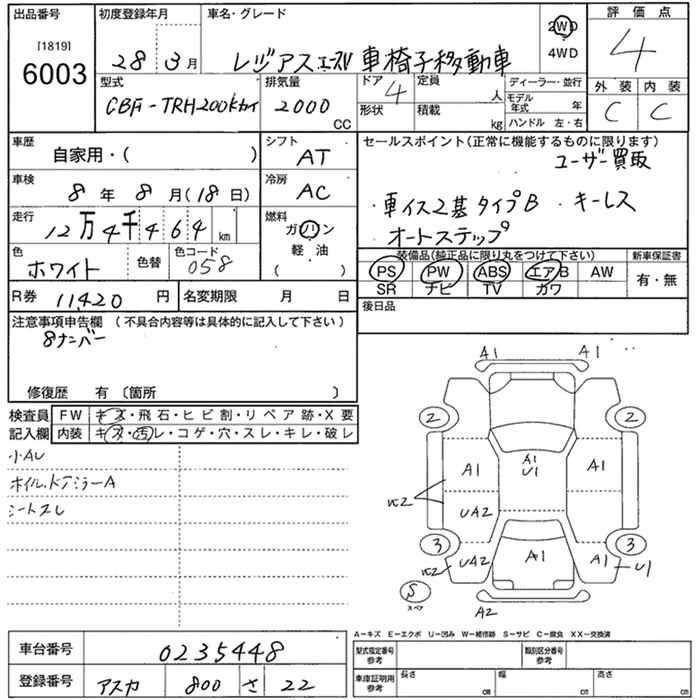 出品番号
[1819]
6003
初度登録年月
28 3月
車名・グレード
レジアスエースV 車椅子移動車
2WD
4WD
評価点
4
外装 内装
C C
型式
CBF-TRH200Kカイ
排気量
2000
CC
ドア 4
定員
人
形状
積載
kg
ディーラー・並行
モデル年式 年
ハンドル 左・右
車歴
自家用・( )
シフト
AT
車検
8年 8月(18日)
冷房
AC
走行
12万4千464 km
燃料
ガソリン
軽油
( )
色
ホワイト
色替
色コード
058
R券 11420 円
名変期限 月 日
セールスポイント(正常に機能するものに限ります)
ユーザー買取
・車イス2基タイプB ・キーレス
オートステップ
装備品(純正品に限り丸をつけて下さい)
PS PW ABS エアB AW
SR ナビ TV カワ
新車保証書
有・無
後日品
注意事項申告欄 (不具合内容等は具体的に記入して下さい)
8ナンバー
修復歴 有 〔箇所 〕
検査員
記入欄
FW キズ・飛石・ヒビ割・リペア跡・X要
内装 キズ・汚レ・コゲ・穴・スレ・キレ・破レ
小AU
ホイル、ドアミラーA
シートスレ
A1 A1
2 2
A1 A1 U1 A1
UC2 UA2
3 3
UC2 UA2 A1 A1 U1
S
スペア
A2
A-キズ E-エクボ U-凹み W-補修跡 S-サビ C-腐食 XX-交換済
車台番号 0235448
登録番号 アスカ 800 さ 22
型式指定番号
参考
類別区分番号
参考
車庫証明用
参考
長さ cm
幅 cm
高さ cm